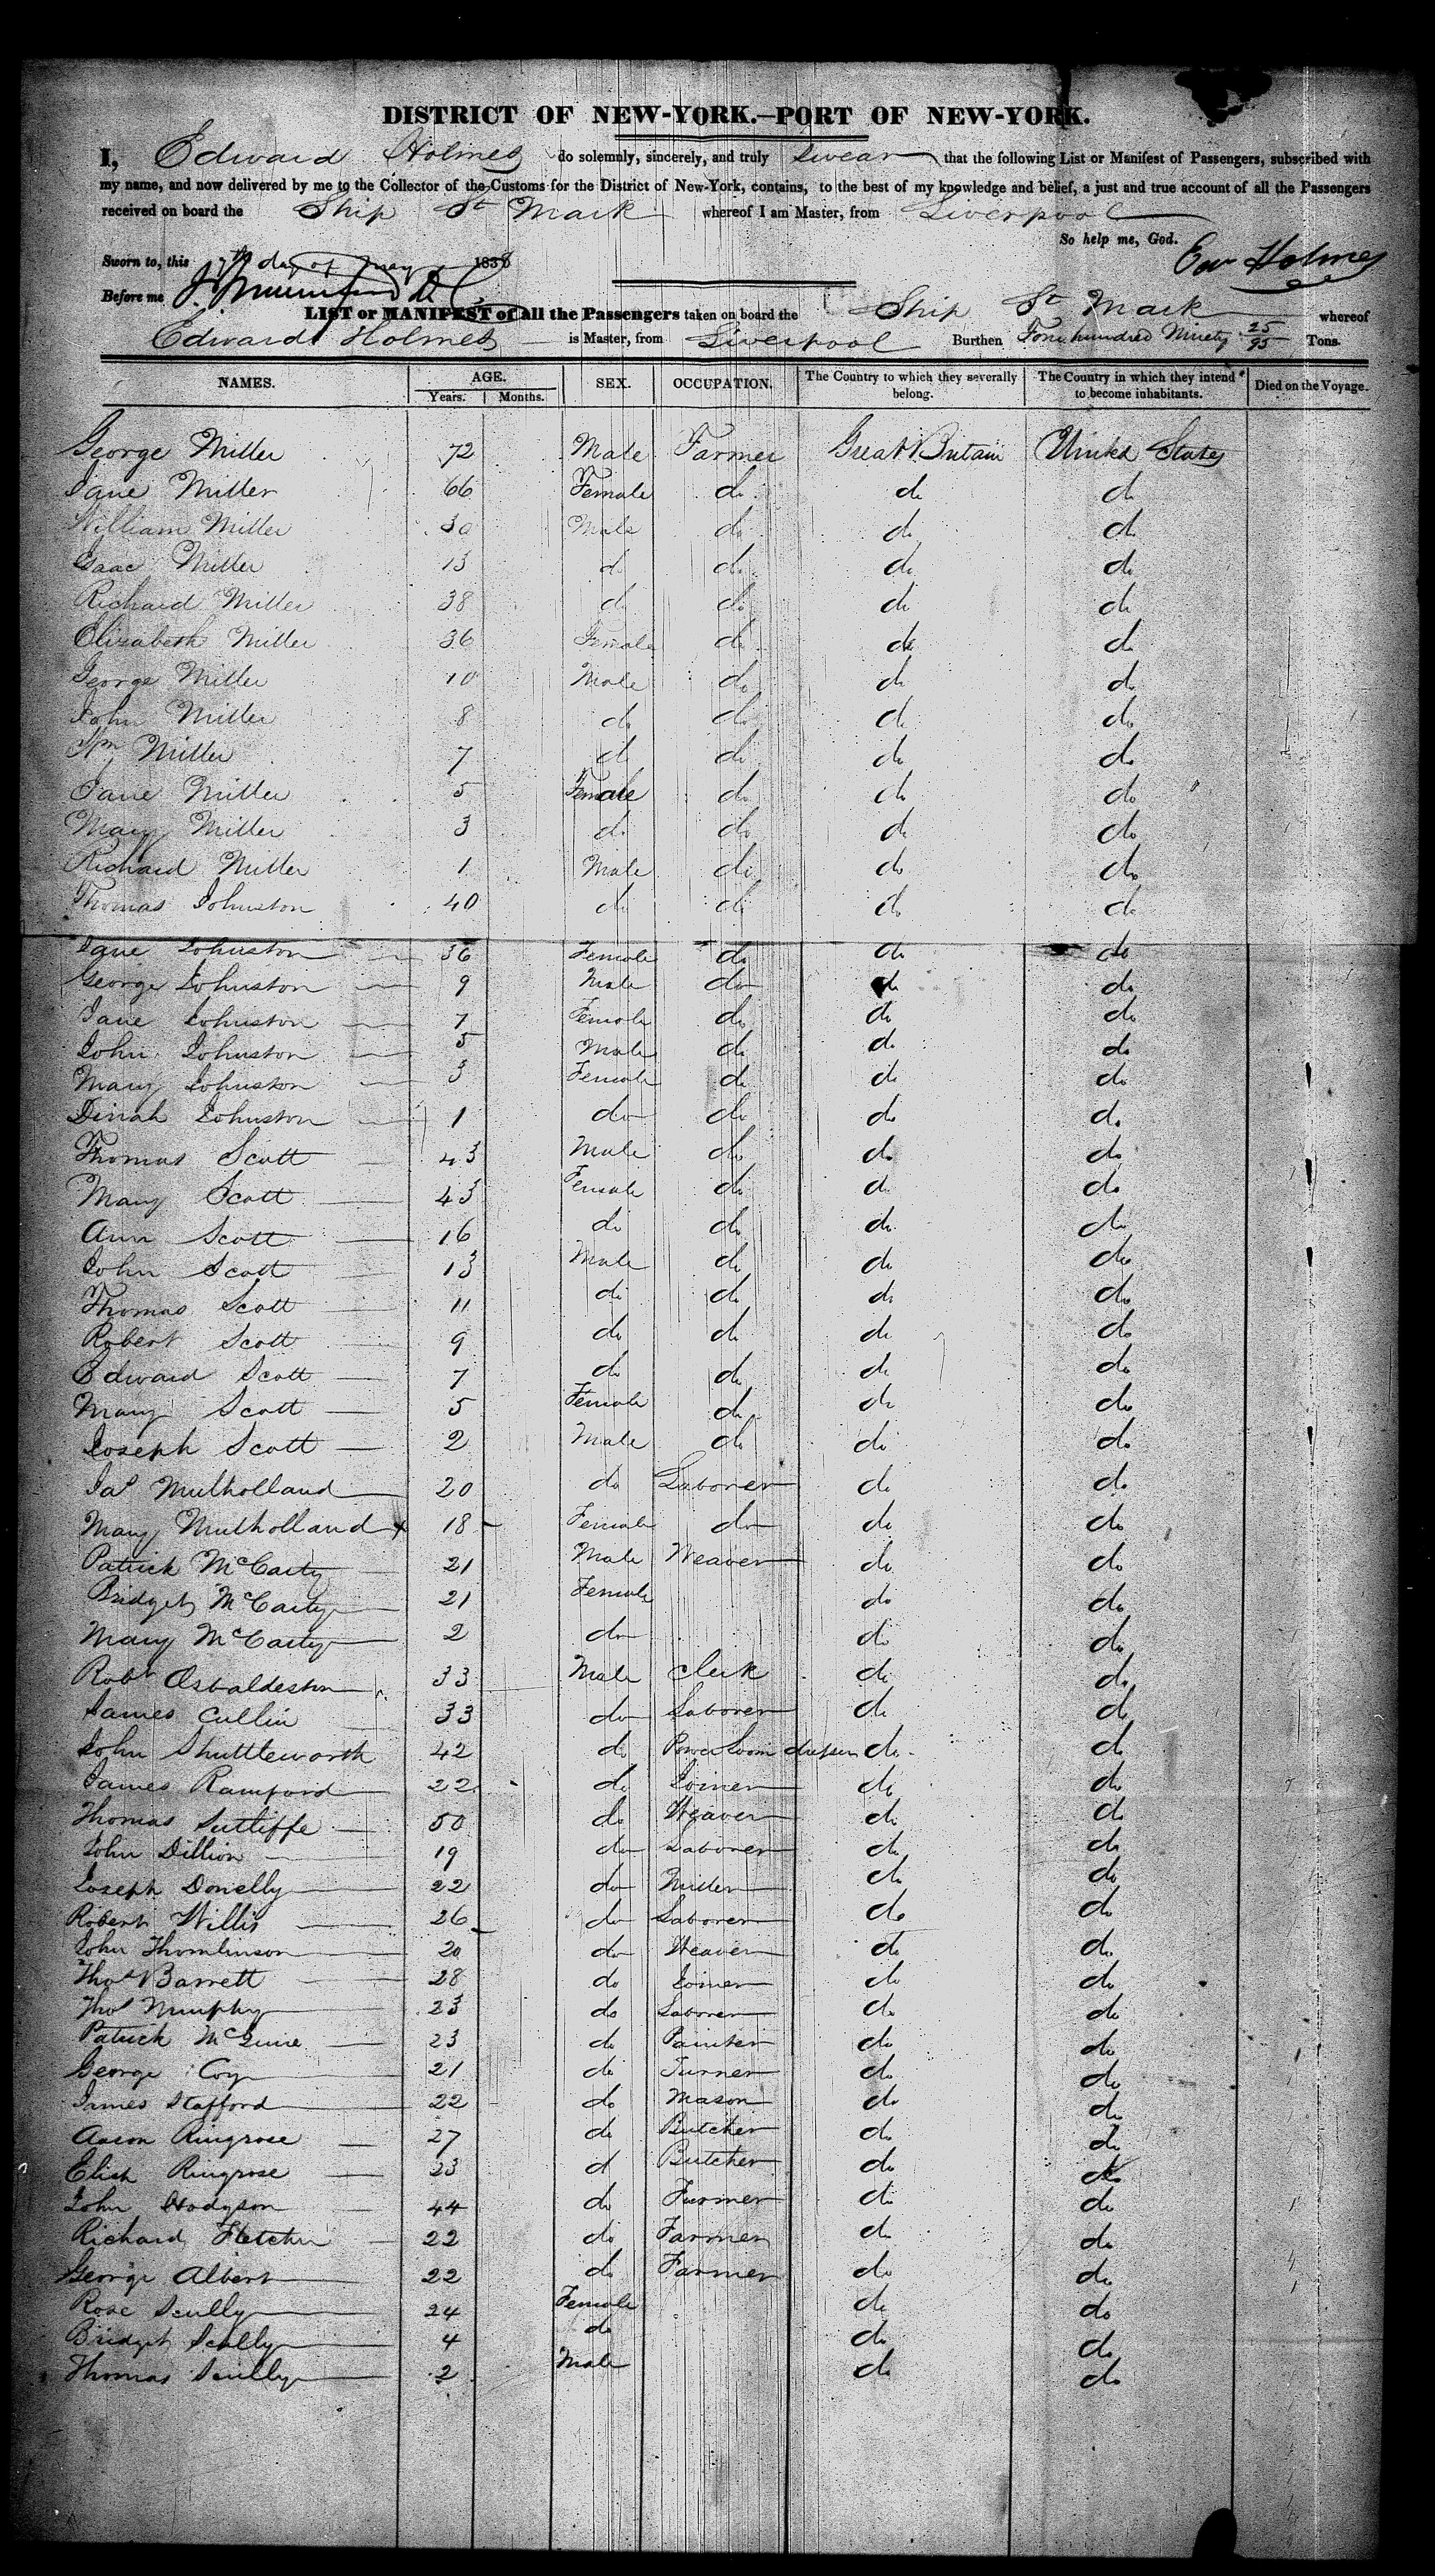 DISTRICT OF NEW-YORK.—PORT OF NEW-YORK.
I, Edward Holmes do solemnly, sincerely, and truly swear that the following List or Manifest of Passengers, subscribed with
my name, and now delivered by me to the Collector of the Customs for the District of New-York, contains, to the best of my knowledge and belief, a just and true account of all the Passengers
received on board the Ship St Mark whereof I am Master, from Liverpool
So help me, God.
Sworn to, this 7th day of May 1838 Edw Holmes
Before me
LIST or MANIFEST of all the Passengers taken on board the Ship St Mark whereof
Edward Holmes is Master, from Liverpool Burthen Four hundred Ninety 25/95 Tons.
NAMES. AGE. SEX. OCCUPATION. The Country to which they severally belong. The Country in which they intend to become inhabitants. Died on the Voyage.
Years. Months.
George Miller 72 Male Farmer Great Britain United States
Jane Miller 66 Female do do do
William Miller 30 Male do do do
Isaac Miller 13 do do do do
Richard Miller 38 do do do do
Elizabeth Miller 36 Female do do do
George Miller 10 Male do do do
John Miller 8 do do do do
Wm Miller 7 do do do do
Jane Miller 5 Female do do do
Mary Miller 3 do do do do
Richard Miller 1 Male do do do
Thomas Johnston 40 do do do do
Jane Johnston 36 Female do do do
George Johnston 9 Male do do do
Jane Johnston 7 Female do do do
John Johnston 5 Male do do do
Mary Johnston 3 Female do do do
Dinah Johnston 1 do do do do
Thomas Scott 43 Male do do do
Mary Scott 43 Female do do do
Ann Scott 16 do do do do
John Scott 13 Male do do do
Thomas Scott 11 do do do do
Robert Scott 9 do do do do
Edward Scott 7 do do do do
Mary Scott 5 Female do do do
Joseph Scott 2 Male do do do
Jas Mulholland 20 do Laborer do do
Mary Mulholland x 18 Female do do do
Patrick McCarty 21 Male Weaver do do
Bridget McCarty 21 Female do do
Mary McCarty 2 do do do
Robt Osbaldeston 33 Male Clerk do do
James Cullin 33 do Laborer do do
John Shuttleworth 42 do Power Loom dresser do do
James Ramford 22 do Joiner do do
Thomas Sutliffe 50 do Weaver do do
John Dillion 19 do Laborer do do
Joseph Donelly 22 do Miller do do
Robert Willis 26 do Laborer do do
John Thomlinson 20 do Weaver do do
Thos Barrett 28 do Joiner do do
Thos Murphy 23 do Laborer do do
Patrick McGuire 23 do Painter do do
George Coy 21 do Turner do do
James Stafford 22 do Mason do do
Aaron Ringrose 27 do Butcher do do
Elish Ringrose 23 d Butcher do do
John Hodgson 44 do Farmer do do
Richard Fletcher 22 do Farmer do do
George Albert 22 do Farmer do do
Rose Scully 24 Female do do
Bridget Scully 4 do do do
Thomas Scully 2 Male do do